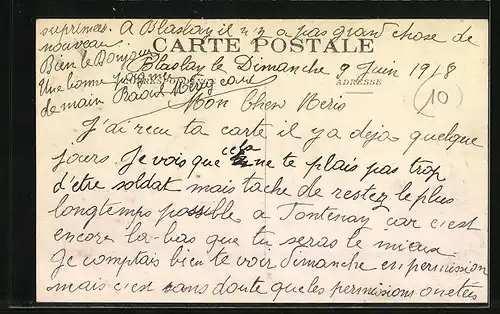 Blaslay le Dimanche 9 Juin 1918
CARTE POSTALE
ADRESSE
(10)
Mon cher
J'ai recu ta carte il y a deja quelque
jours. Je vois que cela ne te plais pas trop
d'être soldat mais tache de restez le plus
longtemps possible a Fontenay car c'est
encore la-bas que tu seras le mieux
Je comptais bien te voir dimanche en permission
mais c'est sans doute que les permissions on etées
suprimés. A Blaslay il n'y a pas grand chose de
nouveau.
Bien le Bonjour
Une bonne poignée
de main Raoul